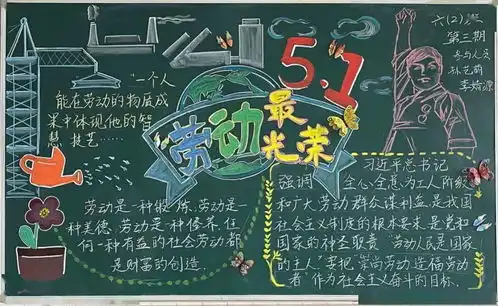 六(2)班
第三期
参与人员
5.1
劳动最光荣
一个人
能在劳动的物质成
果中体现他的智
慧、技艺……
劳动是一种锻炼,劳动是一
种美德,劳动是一种修养,任
何一种有益的社会劳动都
是财富的创造.
习近平总书记
强调 全心全意为工人阶级
和广大劳动群众谋利益,是我国
社会主义制度的根本要求,是党和
国家的神圣职责 "劳动人民是国家
的主人"要把"崇尚劳动造福劳动
者"作为社会主义奋斗的目标.